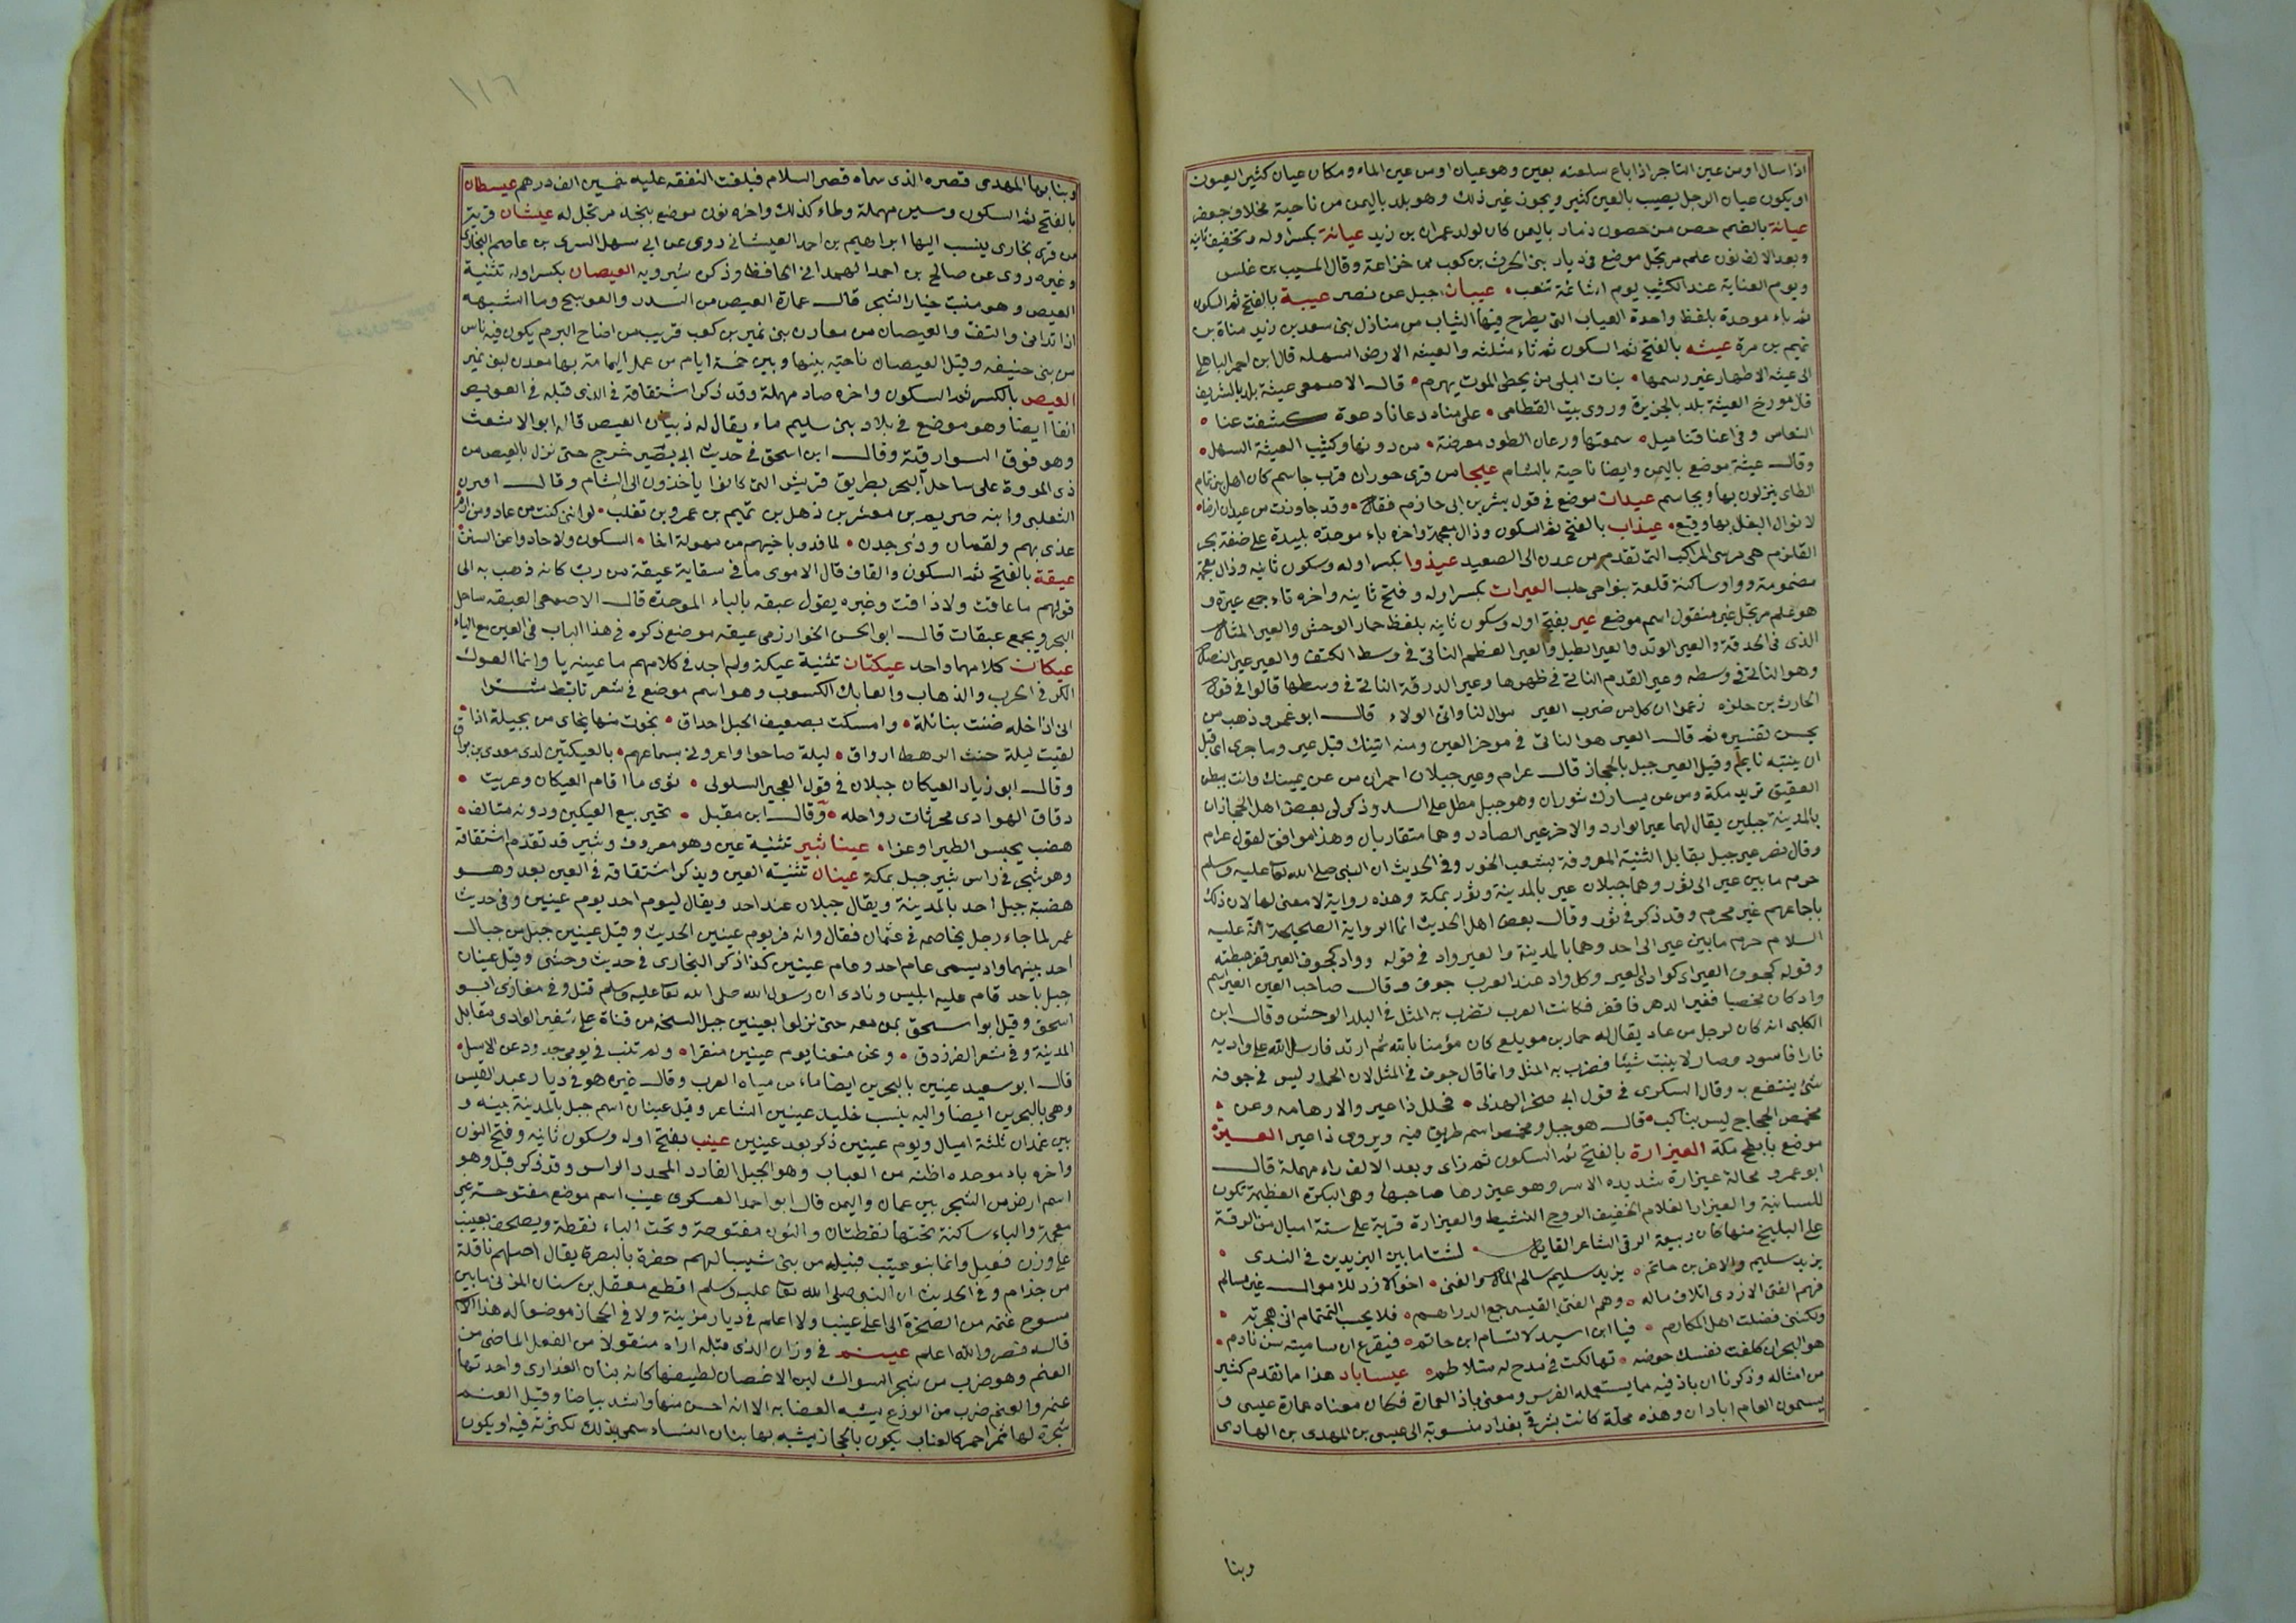 اذا سال او من عين التاجر اذا باع سلعته بعين وهو عيان او من عين الماء ومكان عيان كثير العيون
او يكون عيان الرجل يصيب بالعين كثير ويجوز غير ذلك وهو بلد باليمن من ناحية مخلاف جعفر
عيانة بالضم حصن من حصون ذمار باليمن كان لولد عمران بن زيد عيانة بكسر اوله وتخفيف ثانيه
وبعد الالف نون علم مرتجل موضع في ديار بني الحرث بن كعب من خزاعة وقال المسيب بن علس
ويوم العناية عند الكثيب يوم اشائمة تنعب عيبان جبل عن نصر عيبة بالفتح ثم السكون
ثم باء موحدة بلفظ واحدة العياب التي يطرح فيها الثياب من منازل بني سعد بن زيد مناة بن
تميم بن مرة عيثه بالفتح ثم السكون ثم ثاء مثلثه والعيثه الارض السهلة قال ابن احمر الباهلي
الى عيثه الاطهار غير رسمها بنات البلى من يخطي الموت يهرم قال الاصمعي عيثة بلد بالشريف
قال مورخ العيثة بلد بالجزيرة وروى بيت القطامي على مناد دعانا دعوة كشفت عنا
النعاس وفي اعناقنا ميل سمعتها ورعان الطود معرضة من دونها وكثيب العيثة السهل
وقال عيثة موضع باليمن وايضا ناحية بالشام عيجا من قرى حوران قرب جاسم كان اهل بن تمام
الطاى ينزلون بها وبجاسم عيدان موضع في قول بشر بن ابي حازم فقال وقد جاوزت من عيدان ارضا
لابوال البغل بها وقيع عيذاب بالفتح ثم السكون وذال معجمة واخره باء موحدة بليدة على ضفة بحر
القلزم هي مرسى المراكب التي تقدم من عدن الى الصعيد عيذوا بكسر اوله وسكون ثانيه وذال معجمة
مضمومة وواو ساكنة قلعة بنواحى حلب العيرات بكسر اوله وفتح ثانيه واخره تاء جمع عيرة و
هو علم مرتجل غير منقول اسم موضع عير بفتح اوله وسكون ثانيه بلفظ حمار الوحش والعير المثال
الذى في الحدقة والعير الوتد والعير الطبل والعير العظم الناتى في وسط الكتف والعير عير النصل
وهو الناتى في وسطه وعير القدم الناتى في ظهرها وعير الورقة الناتى في وسطها قالوا في قول
الحارث بن حلزه زعموا ان كل من ضرب العير موال لنا وانى الولاء قال ابو عمرو ذهب من
يحسن تفسيره ثم قال العير هو الناتى في موخر العين ومنه اتيتك قبل عير وما جرى اى قبل
ان ينتبه نايم وقيل العير جبل بالحجاز قال عرام وعير جبلان احمران من عن يمينك وانت ببطن
العقيق تريد مكة ومن عن يسارك شوران وهو جبل مطل على السد وذكر لى بعض اهل الحجاز ان
بالمدينة جبلين يقال لهما عير الوارد والاخر عير الصادر وهما متقاربان وهذا موافق لقول عرام
وقال نصر عير جبل يقابل الثنية المعروفة بشعب الخوز وفي الحديث ان النبى صلى الله تعا عليه وسلم
حرم ما بين عير الى ثور وهما جبلان عير بالمدينة وثور بمكة وهذه رواية لا معنى لها لان ذلك
باجماعهم غير محرم وقد ذكر في ثور وقال بعض اهل الحديث انما الرواية الصحيحة انه عليه
السلام حرم ما بين عير الى احد وهما بالمدينة والعير واد في قوله وواد كجوف العير قفر هبطته
وقوله كجوف العير اى كوادى العير وكل واد عند العرب جوف وقال صاحب العين العير اسم
واد كان مخصبا فغير الدهر فاقفر فكانت العرب تضرب به المثل في البلد الوحش وقال ابن
الكلبى انه كان لرجل من عاد يقال له حمار بن مويلع كان مؤمنا بالله ثم ارتد فارسل الله على واديه
نارا فاسود وصار لا ينبت شيئا فضرب به المثل وانما قال جوف في المثل لان الحمار ليس في جوفه
شئ ينتفع به وقال السكرى في قول ابى صخر الهذلى فجلل ذا عير والارهامه وعن
مخمص الحجاج ليس بناكب قال هو جبل ومخمص اسم طريق فيه ويروى ذا عير العيرة
موضع بابطح مكة العيزارة بالفتح ثم السكون ثم زاى وبعد الالف راء مهملة قال
ابو عمرو محالة عيزارة شديده الاسر وهو عيزرها صاحبها وهى البكرة العظيمة تكون
للسانية والعيزار الغلام الخفيف الروح النشيط والعيزارة قرية على ستة اميال من الرقة
على البليخ منها كان ربيعة الرقى الشاعر القايل لشتان ما بين اليزيدين في الندى
يزيد سليم والاغر بن حاتم يزيد سليم سالم المال والفتى اخو الازد للاموال غير مسالم
فهم الفتى الازدى اتلاف ماله وهم الفتى القيسى جمع الدراهم فلا يحسب التمتام انى هجوته
ولكننى فضلت اهل المكارم فيا ابن اسيد لا تسام ابن حاتم فيقرع ان ساميته سن نادم
هو البحر ان كلفت نفسك خوضه تهالكت في مدح له متلاطم عيساباد هذا ما تقدم كثير
من امثاله وذكرنا ان باذ فيه مما يستعمله الفرس ومعنى باذ العمارة فكان معناه عمارة عيسى و
يسمون العام ابادان وهذه محلة كانت بشرقى بغداد منسوبة الى عيسى بن المهدى بن الهادى
وبنا
١١٦
وبنا بها المهدى قصره الذى سماه قصر السلام فبلغت النفقه عليه خمسين الف درهم عيسطان
بالفتح ثم السكون وسين مهملة وطاء كذلك واخره نون موضع بنجد مرتجل له عيشان قرية
من قرى بخارى ينسب اليها ابراهيم بن احمد العيشانى روى عن ابى سهل السرى بن عاصم البخارى
وغيره روى عن صالح بن احمد الهمدانى الحافظ وذكره شيرويه العيصان بكسر اوله تثنية
العيص وهو منبت خيار الشجر قال عمارة العيص من السدر والعوسج وما اشبهه
اذا تدانى والتف والعيصان من معادن بنى نمير بن كعب قريب من اضاخ البرم يكون فيه ناس
من بنى حنيفه وقيل العيصان ناحية بينها وبين حجر خمسة ايام من عمل اليمامة بها معدن لبنى نمير
العيص بالكسر ثم السكون واخره صاد مهملة وقد ذكر اشتقاقة في الذى قبله في العويص
انفا ايضا وهو موضع في بلاد بنى سليم ماء يقال له ذبيان العيص قاله ابو الاشعث
وهو فوق السوارقية وقال ابن اسحق في حديث ابى بصير خرج حتى نزل بالعيص من
ذى المروة على ساحل البحر بطريق قريش التى كانوا ياخذون الى الشام وقال افنون
الثعلبى وابنه صريم بن معشر بن ذهل بن تميم بن عمرو بن تغلب لو اننى كنت من عاد ومن ارم
غذى بهم ولقمان وذى جدن لما فدوا باخيهم من مهولة اخا السكون ولا حادوا عن السنن
عيقة بالفتح ثم السكون والقاف قال الاموى ما في سقاية عيقة من رب كانه ذهب به الى
قولهم ما عاقت ولا ذاقت وغيره يقول عبقه بالباء الموحدة قال الاصمعى العيقة ساحل
البحر ويجمع عيقات قال ابو الحسن الخوارزمى عيقة موضع ذكره في هذا الباب في العين مع الياء
عيكان كلاهما واحد عيكتان تثنية عيكة ولم اجد في كلامهم ما عينه يا وانما العوك
الكر في الحرب والذهاب والعايك الكسوب وهو اسم موضع في شعر تابط شرا
انى اذا خلة ضنت بنائلة وامسكت بضعيف الحبل احذاق نجوت منها نجاى من بجيلة اذ
لقيت ليلة خبت الرهط ارواق ليلة صاحوا واغروا بى سماعهم بالعيكتين لدى معدى بن براق
وقال ابو زياد العيكان جبلان في قول العجير السلولى ثوى ما اقام العيكان وعريت
دقاق الهوادى محرثات رواحله وقال ابن مقبل تخير نبع العيكين ودونه متالف
هضب يحبس الطير اوعرا عينا ثبير تثنية عين وهو معروف وثبير قد تقدم اشتقاقة
وهو شجر في راس ثبير جبل بمكة عينان تثنية العين ويذكر اشتقاقة في العين بعد وهو
هضبة جبل احد بالمدينة ويقال جبلان عند احد ويقال ليوم احد يوم عينين وفى حديث
عمر لما جاء رجل يخاصمه في عثمان فقال وانه فر يوم عينين الحديث وقيل عينين جبل من جبال
احد بينهما واد يسمى عام احد وعام عينين كذا ذكر البخارى في حديث وحشى وقيل عينان
جبل باحد قام عليه ابليس ونادى ان رسول الله صلى الله تعا عليه وسلم قتل وفى مغازى ابو
اسحق وقيل ابو اسحق بمن معه حتى نزلوا بعينين جبل السبخه من قناة على شفير الوادى مقابل
المدينة وفى شعر الفرزدق ونحن منعنا يوم عينين منقرا ولم تنب في يومى جدود عن الاسل
قال ابو سعيد عينين بالبحرين ايضا ماء من مياه العرب وقال غيره هو في ديار عبد القيس
وهى بالبحرين ايضا واليه ينسب خليد عينين الشاعر وقيل عينان اسم جبل بالمدينة بينه و
بين غمدان ثلثة اميال ويوم عينين ذكر بعد عينين عينب بفتح اوله وسكون ثانيه وفتح النون
واخره باء موحده اظنه من العباب وهو الجبل الفارد المحدد الراس وقد ذكر قبل وهو
اسم ارض من الشحر بين عمان واليمن قال ابو احمد العسكرى عينب اسم موضع مفتوحة عير
معجمة والياء ساكنة تحتها نقطتان والنون مفتوحة وتحت الباء نقطة ويصحف بعينب
على وزن فعيل وانما بنو عيتب قبيلة من بنى شيبا لهم حضرة بالبصرة يقال اصلهم ناقلة
من جذام وفى الحديث ان النبى صلى الله تعا عليه وسلم اقطع معقل بن سنان المزنى ما بين
مسرح غنمه من الصخرة الى اعلى عينب ولا اعلم في ديار مزينة ولا في الحجاز موضعا له هذا الاسم
قاله نصر والله اعلم عينم في وزان الذى قبله اراه منقولا من الفعل الماضى من
العنم وهو ضرب من شجر السواك لين الاغصان لطيفها كانه بنان العذارى واحدتها
عنمة والعنم ضرب من الوزغ يشبه العضايه الا انه احسن منها واشد بياضا وقيل العنم
شجرة لها ثمر احمر كالعناب يكون بالحجاز يشبه بها بنان النساء سمى بذلك لكثرته فيه او يكون